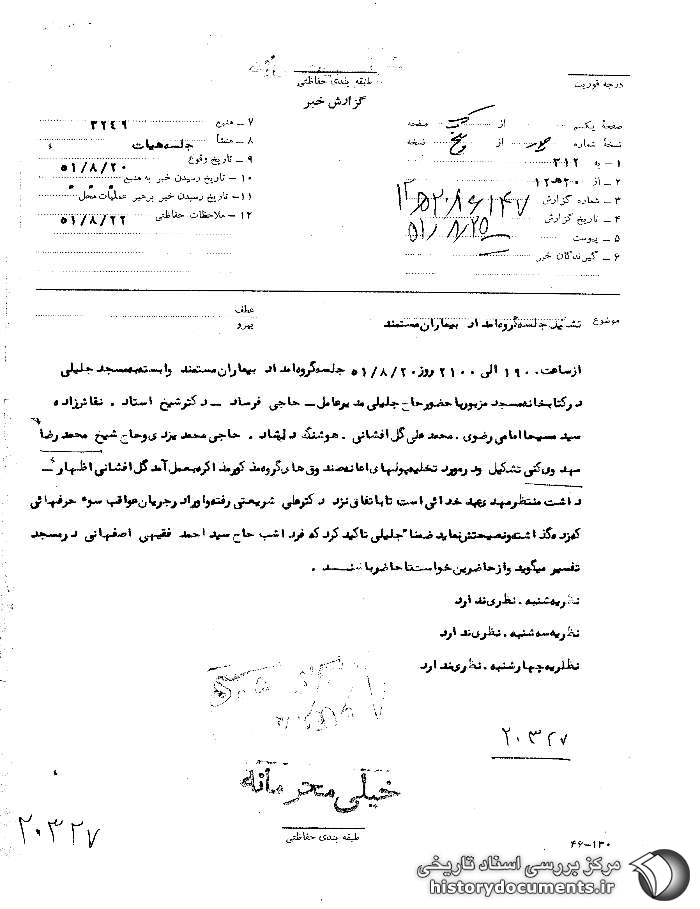 طبقه بندی حفاظتی
درجه فوریت
گزارش خبر
صفحه یکم از یک صفحه
نسخه شماره از پنج نسخه
۱ – به ۳۱۲
۲ – از ۲۰ ه ۱۲
۳ – شماره گزارش
۴ – تاریخ گزارش ۵۱/۸/۲۵
۵ – پیوست
۶ – گیرندگان خبر
۷ – منبع ۳۲۴۹
۸ – منشأ جلسه هیات
۹ – تاریخ وقوع ۵۱/۸/۲۰
۱۰ – تاریخ رسیدن خبر به منبع
۱۱ – تاریخ رسیدن خبر برهبر عملیات محل
۱۲ – ملاحظات حفاظتی ۵۱/۸/۲۲
موضوع تشکیل جلسه گروه امداد بیماران مستمند
عطف
پیرو
از ساعت ۱۹۰۰ الی ۲۱۰۰ روز ۵۱/۸/۲۰ جلسه گروه امداد بیماران مستمند وابسته بمسجد جلیلی
در کتابخانه مسجد مزبور با حضور حاج جلیلی مدیر عامل – حاجی فرساد – دکتر شیخ استاد . نقاش زاده
سید مسیحا امامی رضوی . محمد علی گل افشانی . هوشنگ دلیشاد . حاجی محمد یزدی و حاج شیخ محمد رضا
مهدوی کنی تشکیل و در مورد تخلیه پولهای اعانه صندوق های گروه مذکور مذاکره بعمل آمد گل افشانی اظهار
داشت منتظر مهدیه خدائی است تا با تفاق نزد دکتر علی شریعتی رفته و او را در جریان عواقب سوء حرفهائی
که زده گذاشته و نصیحتش نماید ضمنا" جلیلی تاکید کرد که فردا شب حاج سید احمد فقیهی اصفهانی در مسجد
تفسیر میگوید و از حاضرین خواست تا حاضر باشند .
نظریه شنبه . نظری ندارد
نظریه سه شنبه . نظری ندارد
نظریه چهارشنبه . نظری ندارد
۲۰۳۲۷
خیلی محرمانه
طبقه بندی حفاظتی
۲۰۳۲۷
۴۶-۱۳۰
مرکز بررسی اسناد تاریخی
historydocuments.ir